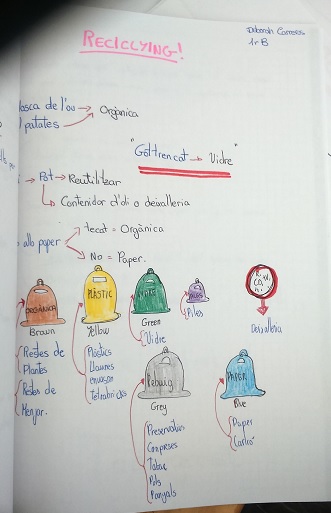 Deborah Carreras
1r B
RECICLYING!
l'ou → Orgànica
patates
"Got trencat → Vidre"
→ Pot → Reutilitzar
→ Contenidor d'oli o deixalleria
paper → tacat = Orgànica
No = Paper.
ORGÀNICA
PLÀSTIC
PILES
REBUIG
PAPER
Brown
Yellow
Green
Piles
Deixalleria
Restes de
Plantes
Restes de
Menjar.
Plàstics
Llaunes
envasos
Tetrabricks
Vidre
Grey
Blue
Preservatius
Compreses
Tabac
Pols
Panyals
Paper
Cartró